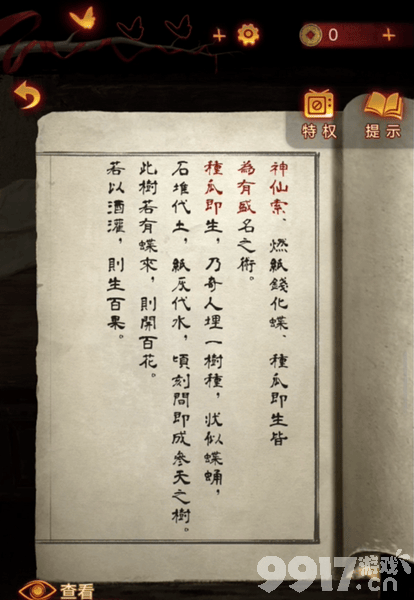 0
特权
提示
神仙索、燃紙錢化蝶、種瓜即生皆
為有盛名之術。
種瓜即生，乃奇人埋一樹種，狀似蝶蛹，
石堆代土，紙灰代水，頃刻間即成參天之樹。
此樹若有蝶來，則開百花。
若以酒灌，則生百果。
查看
9917游戏
.cn